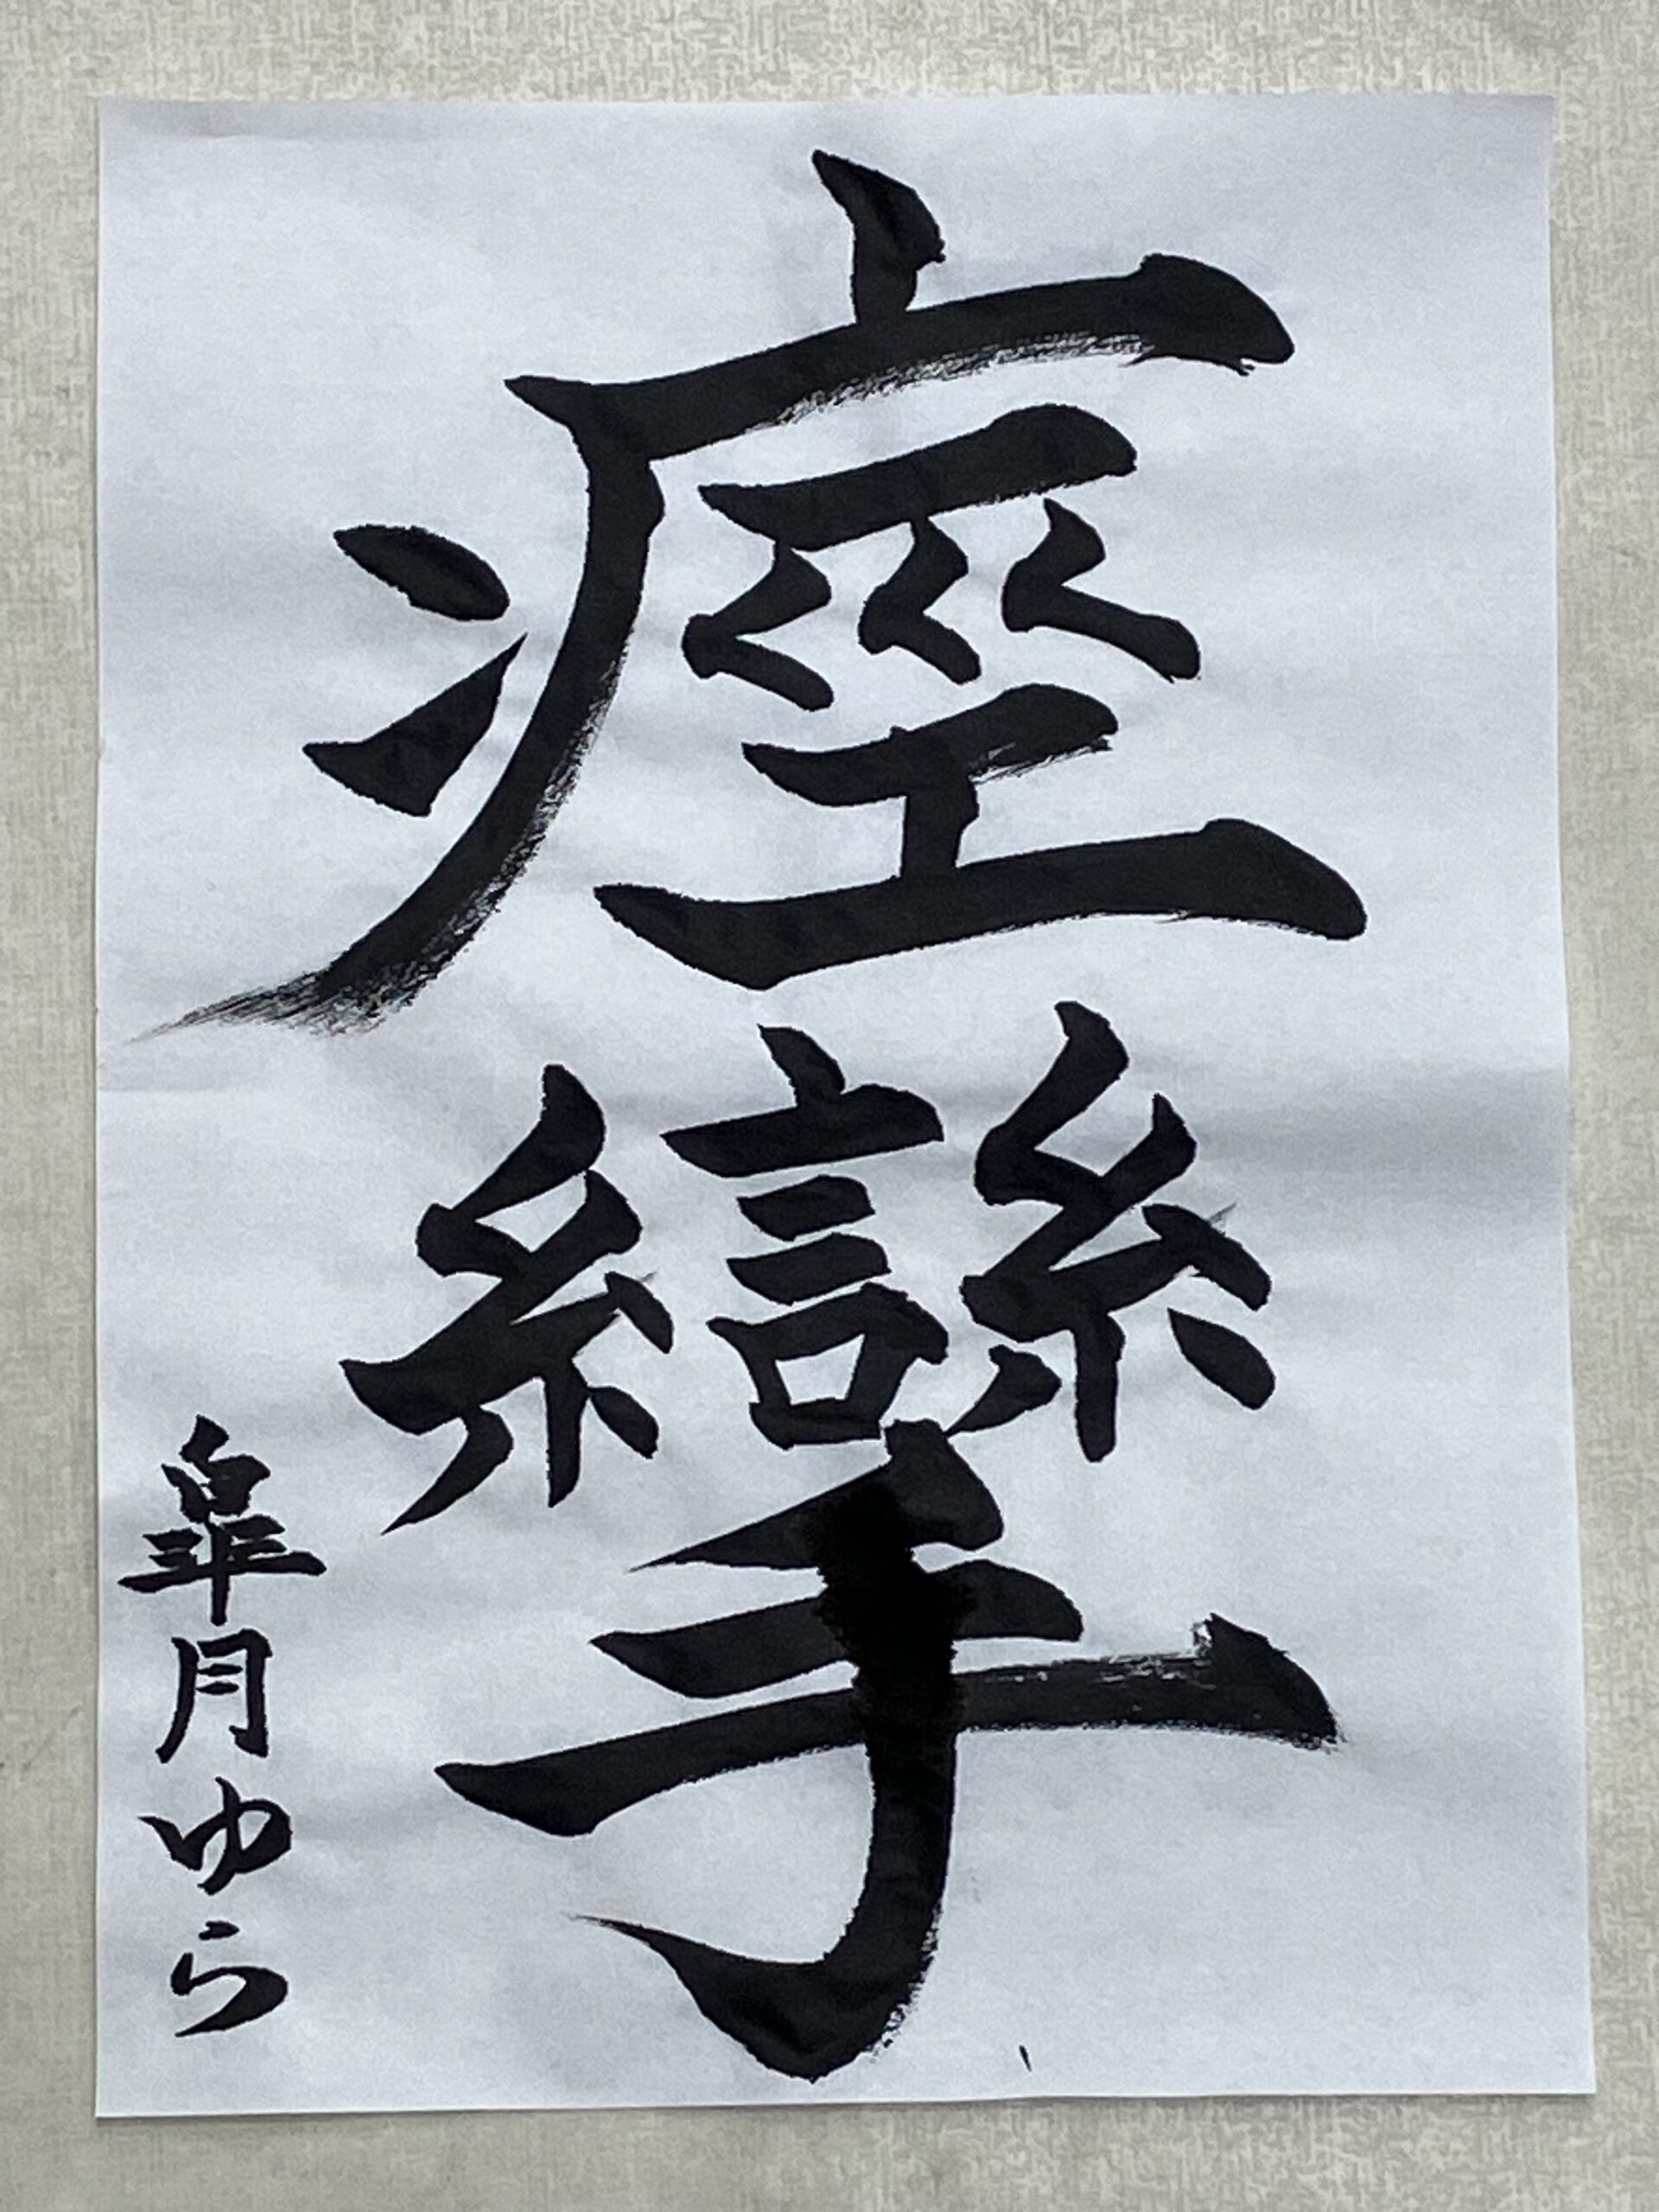 痙攣
皐月ゆら